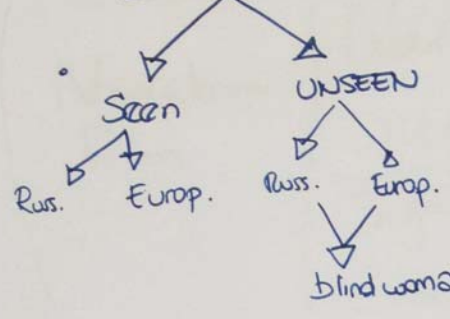 Seen UNSEEN
Rus. Europ. Russ. Europ.
blind woma